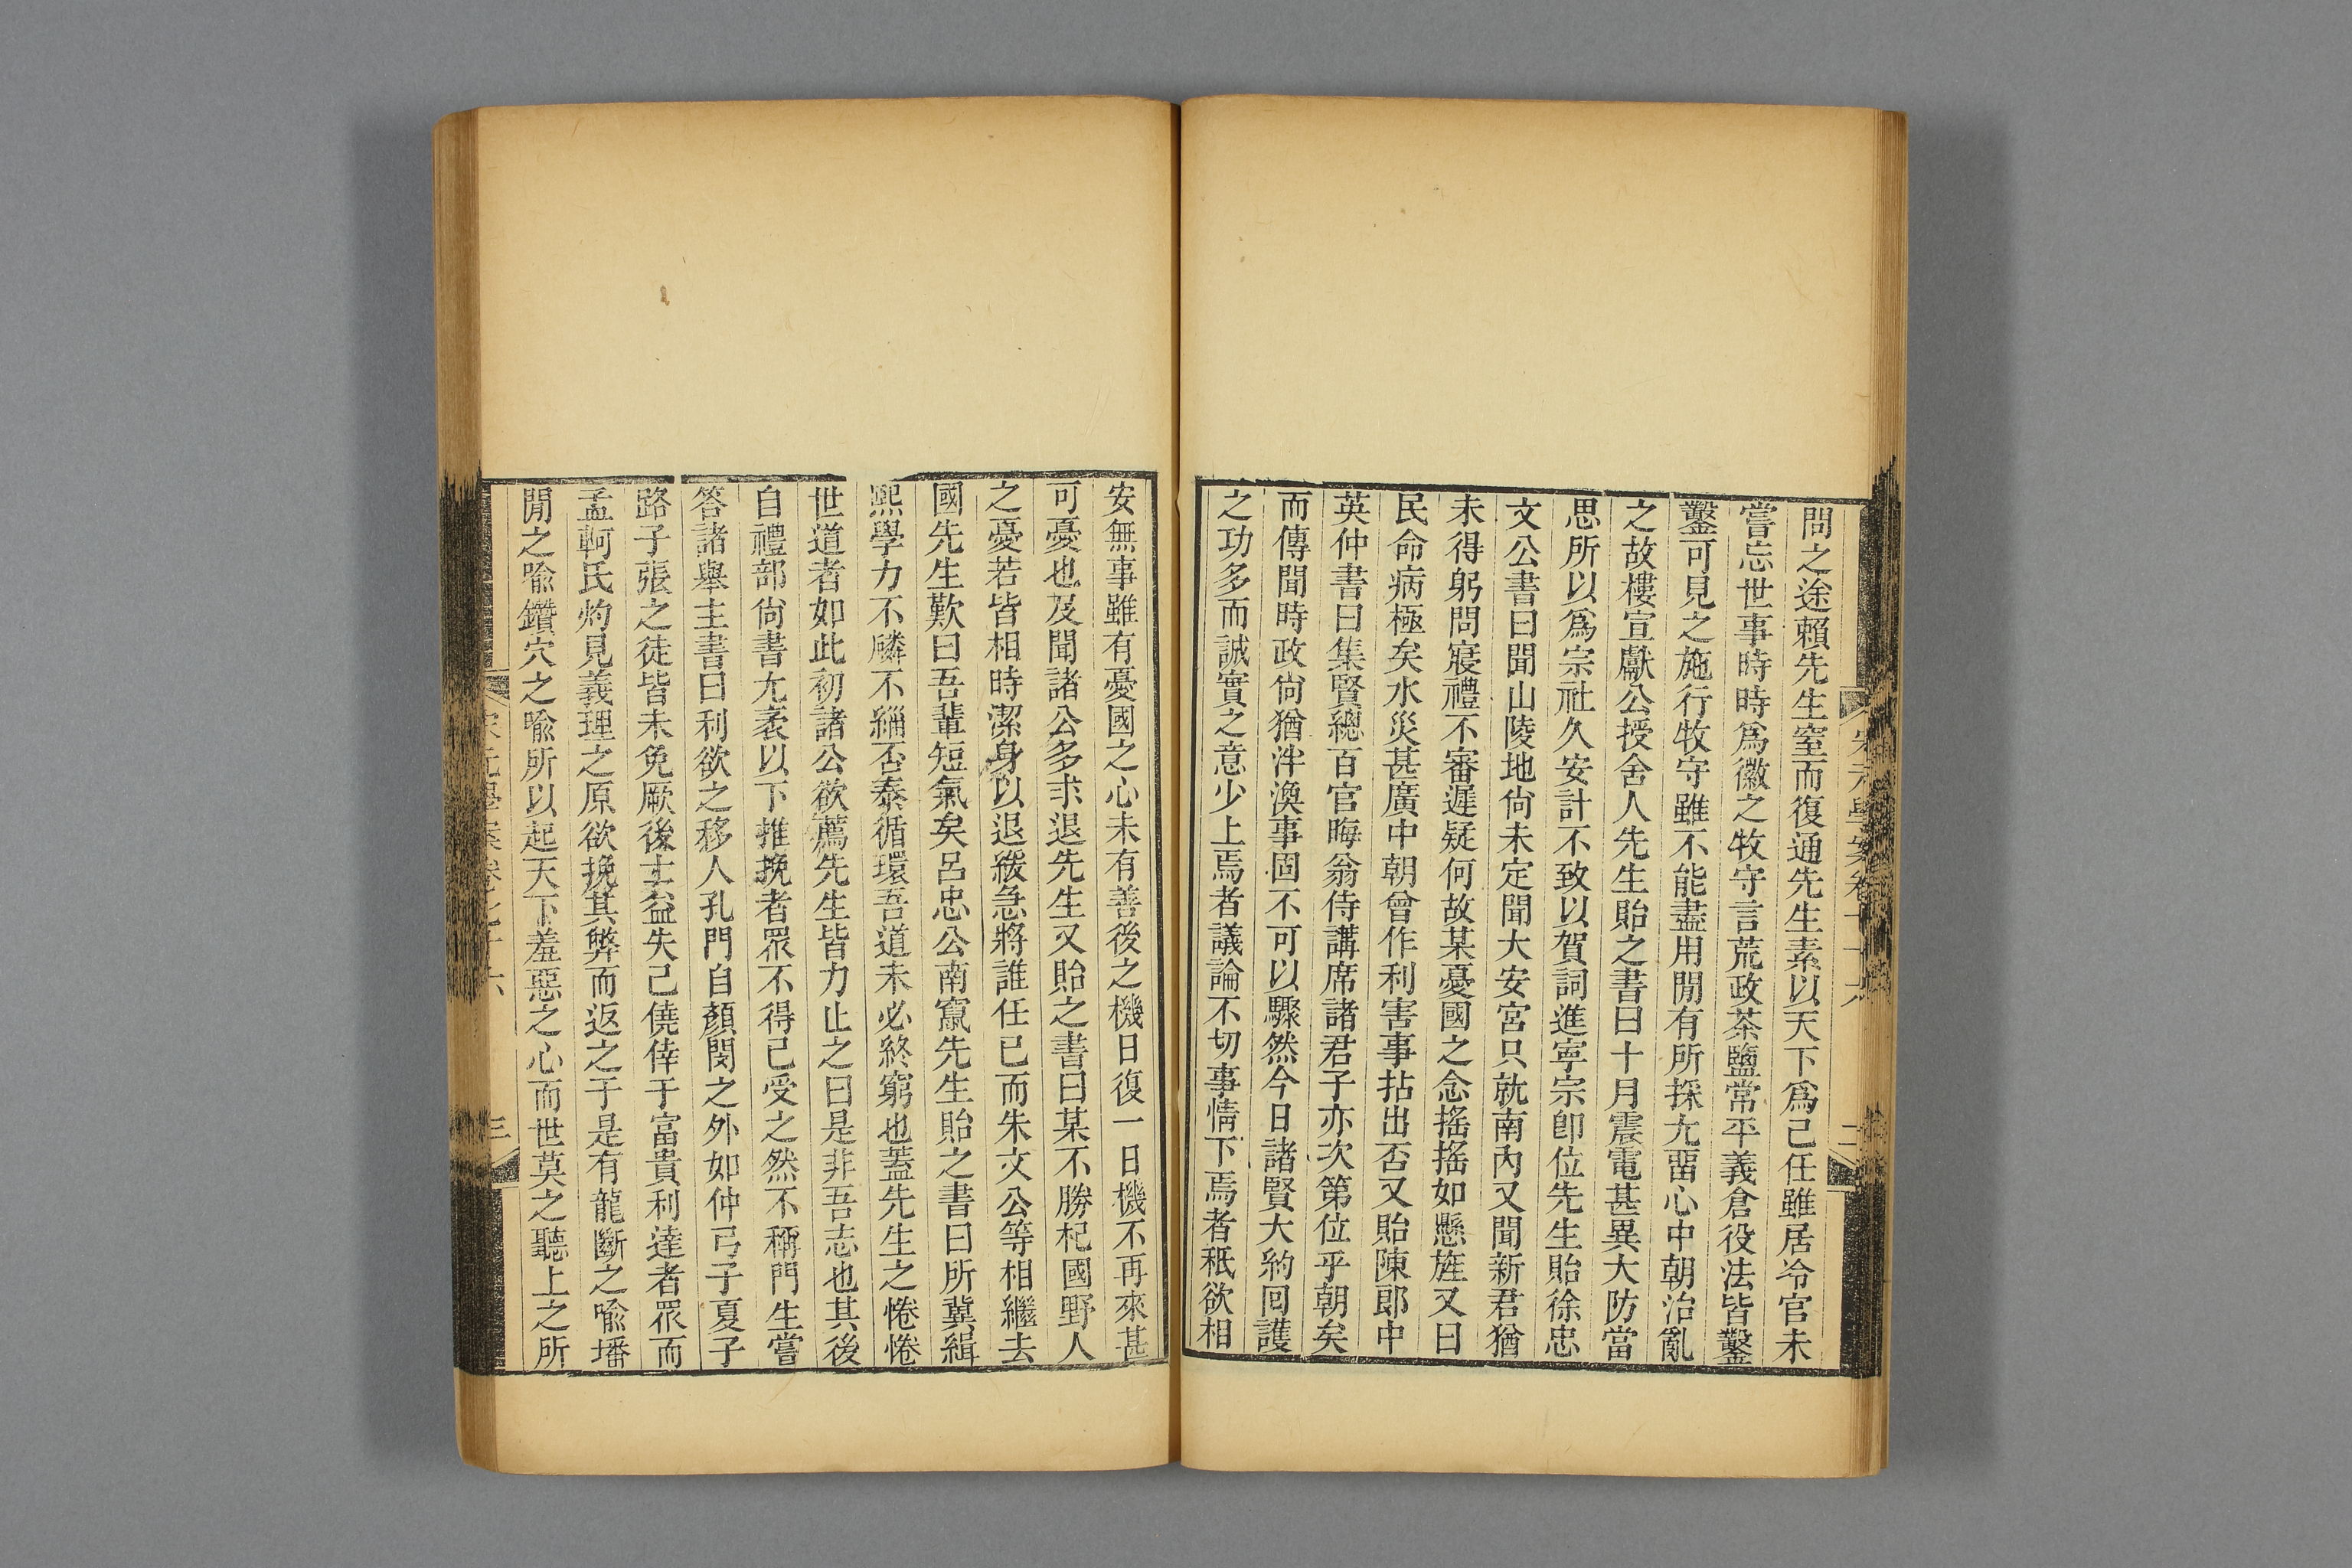 問之途賴先生窒而復通先生素以天下爲己任雖居冷官未
嘗忘世事時時爲徽之牧守言荒政茶鹽常平義倉役法皆鑿
鑿可見之施行牧守雖不能盡用閒有所採尢畱心中朝治亂
之故樓宣獻公授舍人先生貽之書曰十月震電甚異大防當
思所以爲宗社久安計不致以賀詞進寧宗卽位先生貽徐忠
文公書曰聞山陵地尙未定聞大安宮只就南內又聞新君猶
未得躬問寢禮不審遲疑何故某憂國之念搖搖如懸旌又曰
民命病極矣水災甚廣中朝曾作利害事拈出否又貽陳郎中
英仲書曰集賢總百官晦翁侍講席諸君子亦次第位乎朝矣
而傳聞時政尙猶泮渙事固不可以驟然今日諸賢大約回護
之功多而誠實之意少上焉者議論不切事情下焉者秖欲相
安無事雖有憂國之心未有善後之機日復一日機不再來甚
可憂也及聞諸公多求退先生又貽之書曰某不勝杞國野人
之憂若皆相時潔身以退緩急將誰任已而朱文公等相繼去
國先生歎曰吾輩短氣矣呂忠公南竄先生貽之書曰所冀緝
熙學力不麟不緇否泰循環吾道未必終窮也蓋先生之惓惓
世道者如此初諸公欲薦先生皆力止之曰是非吾志也其後
自禮部尙書尢袤以下推挽者眾不得已受之然不稱門生嘗
答諸舉主書曰利欲之移人孔門自顏閔之外如仲弓子夏子
路子張之徒皆未免厥後士益失己僥倖于富貴利達者眾而
孟軻氏灼見義理之原欲挽其弊而返之于是有龍斷之喩墦
閒之喩鑽穴之喩所以起天下羞惡之心而世莫之聽上之所
宋元學案卷七十六
三